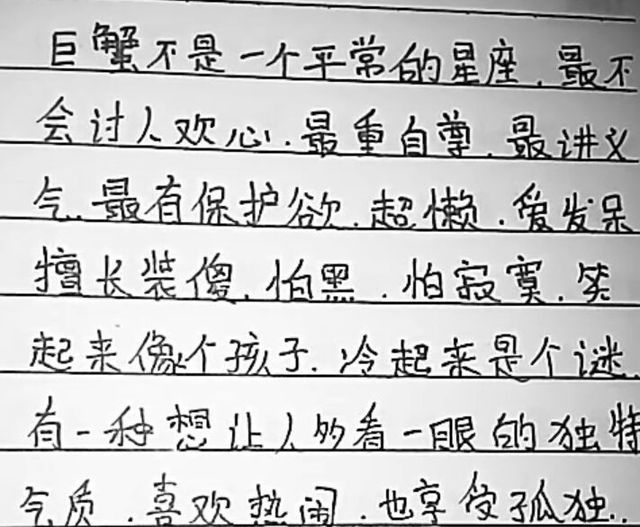 巨蟹不是一个平常的星座.最不
会讨人欢心.最重自尊.最讲义
气.最有保护欲.超懒.爱发呆
擅长装傻.怕黑.怕寂寞.笑
起来像个孩子.冷起来是个谜.
有一种想让人多看一眼的独特
气质.喜欢热闹.也享受孤独..